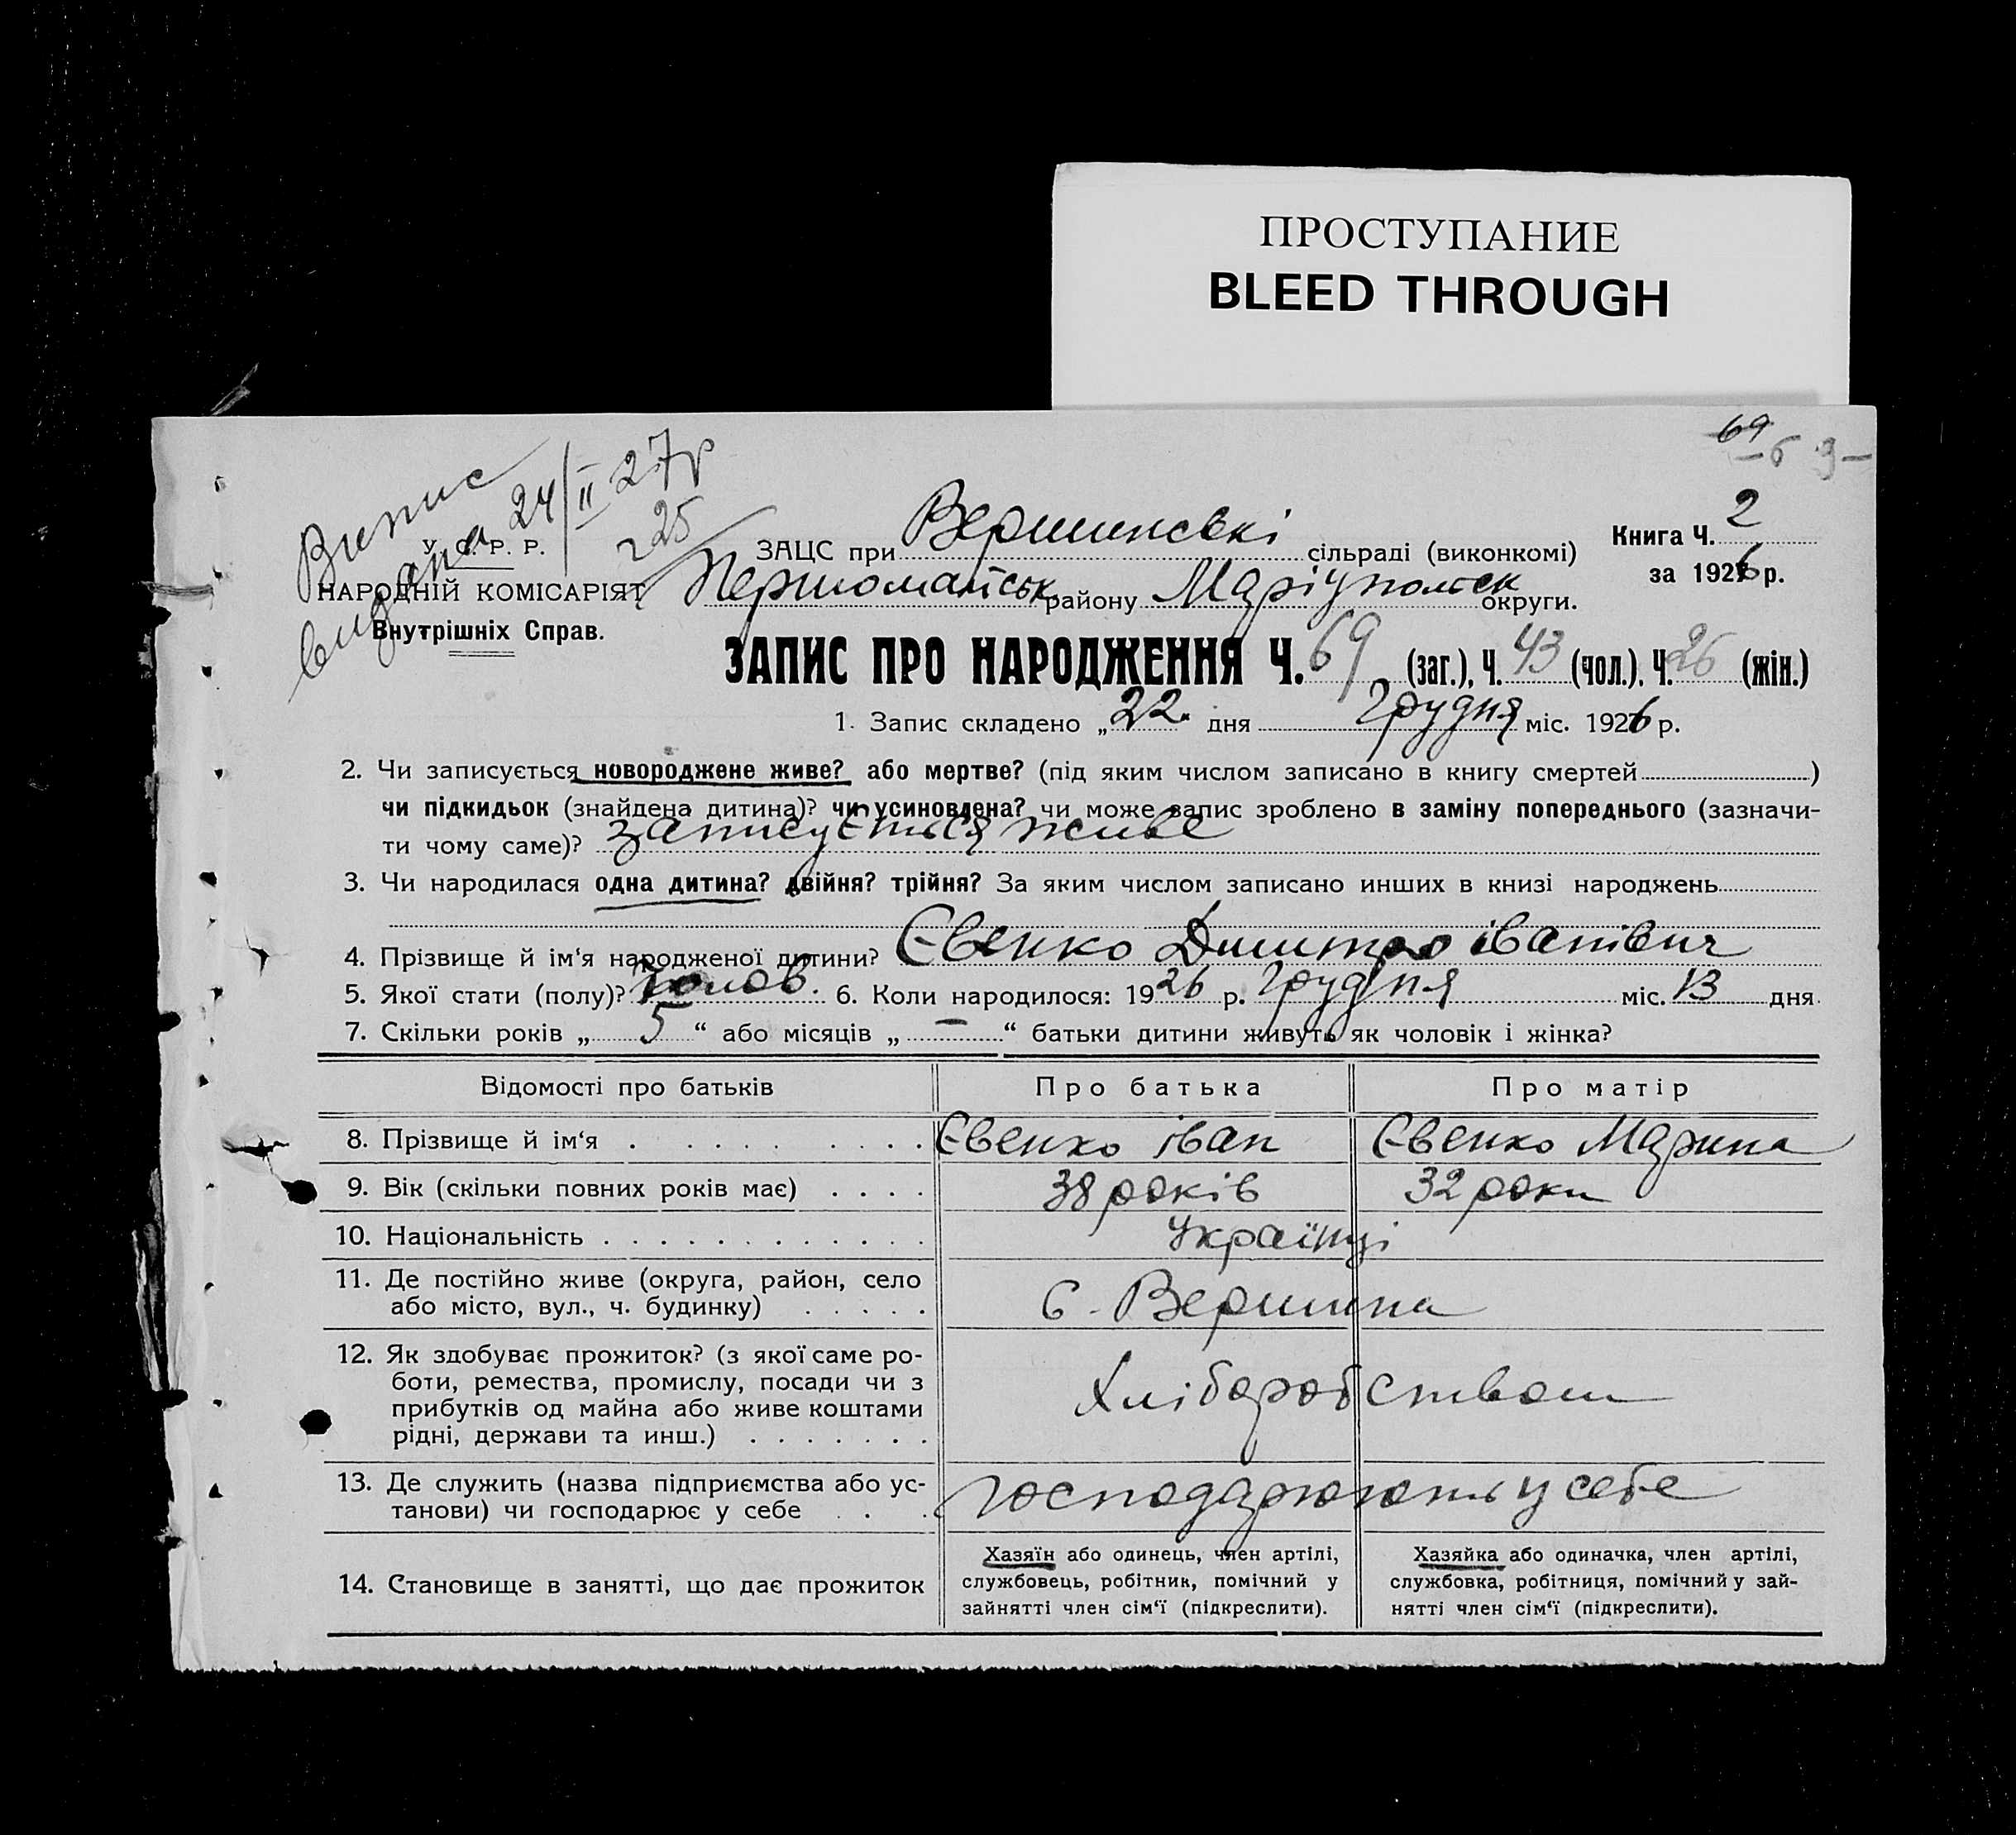 ПРОСТУПАНИЕ
BLEED THROUGH
69
Випис
видана 24/II 27р
225
У. С. Р. Р.
НАРОДНІЙ КОМІСАРІЯТ
Внутрішніх Справ.
ЗАЦС при Вершинські сільраді (виконкомі)
Першомайськ району Маріупольск округи.
Книга Ч. 2
за 1926 р.
ЗАПИС ПРО НАРОДЖЕННЯ Ч. 69 (заг.), Ч. 43 (чол.). Ч. 26 (жін.)
1. Запис складено „22" дня Грудня міс. 1926 р.
2. Чи записується новороджене живе? або мертве? (під яким числом записано в книгу смертей )
чи підкидьок (знайдена дитина)? чи усиновлена? чи може запис зроблено в заміну попереднього (зазначи-
ти чому саме)? записується живе
3. Чи народилася одна дитина? двійня? трійня? За яким числом записано инших в книзі народжень
4. Прізвище й ім'я народженої дитини? Євенко Дмитро іванівич
5. Якої стати (полу)? чолов. 6. Коли народилося: 1926 р. Грудня міс. 13 дня
7. Скільки років „ 5 “ або місяців „ — “ батьки дитини живуть як чоловік і жінка?
Відомості про батьків Про батька Про матір
8. Прізвище й ім'я . . . . . . . . . Євенко іван Євенко Марина
9. Вік (скільки повних років має) . . . . 38 років 32 роки
10. Національність . . . . . . . . . . . . Українці
11. Де постійно живе (округа, район, село
або місто, вул., ч. будинку) . . . . . с. Вершина
12. Як здобуває прожиток? (з якої саме ро-
боти, ремества, промислу, посади чи з
прибутків од майна або живе коштами
рідні, держави та инш.) . . . . . . .
Хліборобством
13. Де служить (назва підприємства або ус-
танови) чи господарює у себе . . .
господарюють у себе
14. Становище в занятті, що дає прожиток
Хазяїн або одинець, член артілі,
службовець, робітник, помічний у
зайнятті член сім'ї (підкреслити).
Хазяйка або одиначка, член артілі,
службовка, робітниця, помічний у зай-
нятті член сім'ї (підкреслити).